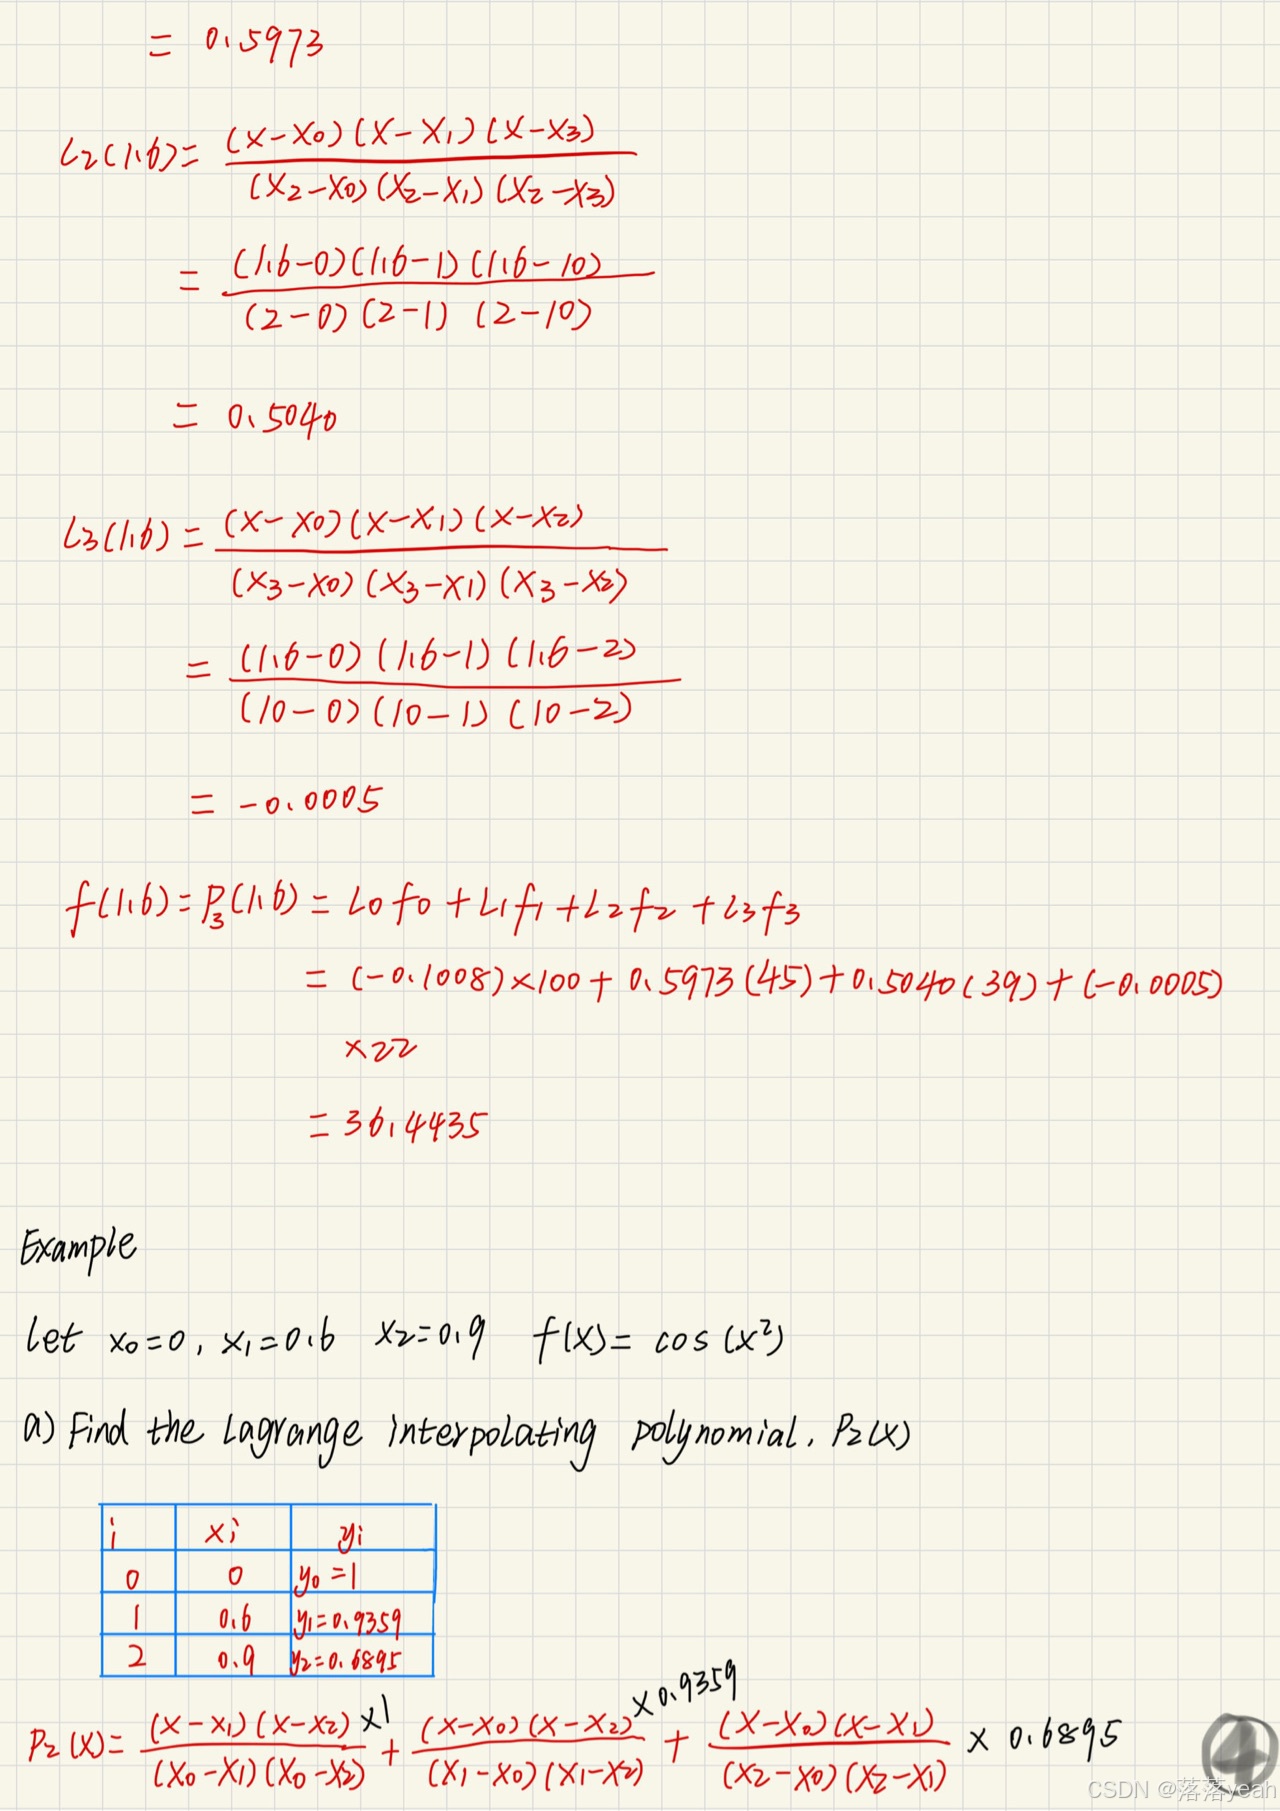 = 0.5973
L2(1.6)= (x-x0)(x-x1)(x-x3)
(x2-x0)(x2-x1)(x2-x3)
= (1.6-0)(1.6-1)(1.6-10)
(2-0)(2-1)(2-10)
= 0.5040
L3(1.6)= (x-x0)(x-x1)(x-x2)
(x3-x0)(x3-x1)(x3-x2)
= (1.6-0)(1.6-1)(1.6-2)
(10-0)(10-1)(10-2)
= -0.0005
f(1.6)=P3(1.6)= L0f0+L1f1+L2f2+L3f3
= (-0.1008)×100+0.5973(45)+0.5040(39)+(-0.0005)
×22
= 36.4435
Example
let x0=0, x1=0.6 x2=0.9 f(x)= cos(x²)
a) Find the Lagrange interpolating polynomial. P2(x)
i xi yi
0 0 y0=1
1 0.6 y1=0.9359
2 0.9 y2=0.6895
P2(x)= (x-x1)(x-x2) ×1 + (x-x0)(x-x2) ×0.9359 + (x-x0)(x-x1) × 0.6895
(x0-x1)(x0-x2) (x1-x0)(x1-x2) (x2-x0)(x2-x1)
4
CSDN @落落yeah